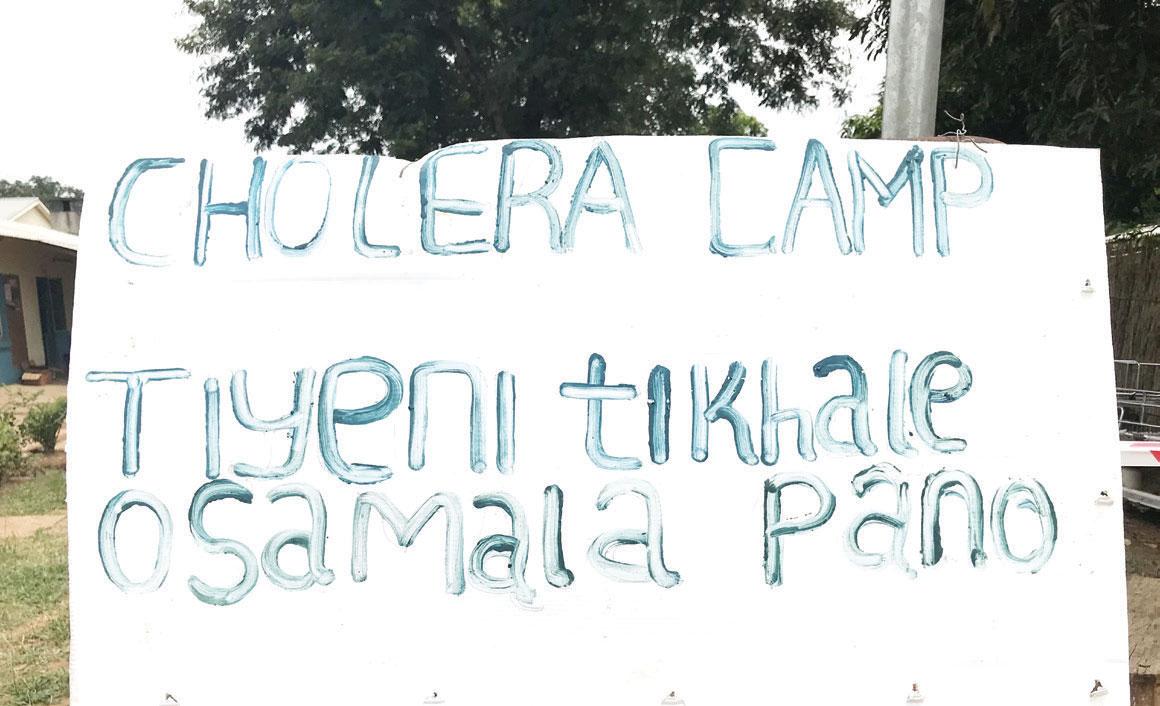 CHOLERA CAMP
Tiyeni tikhale
osamala pano